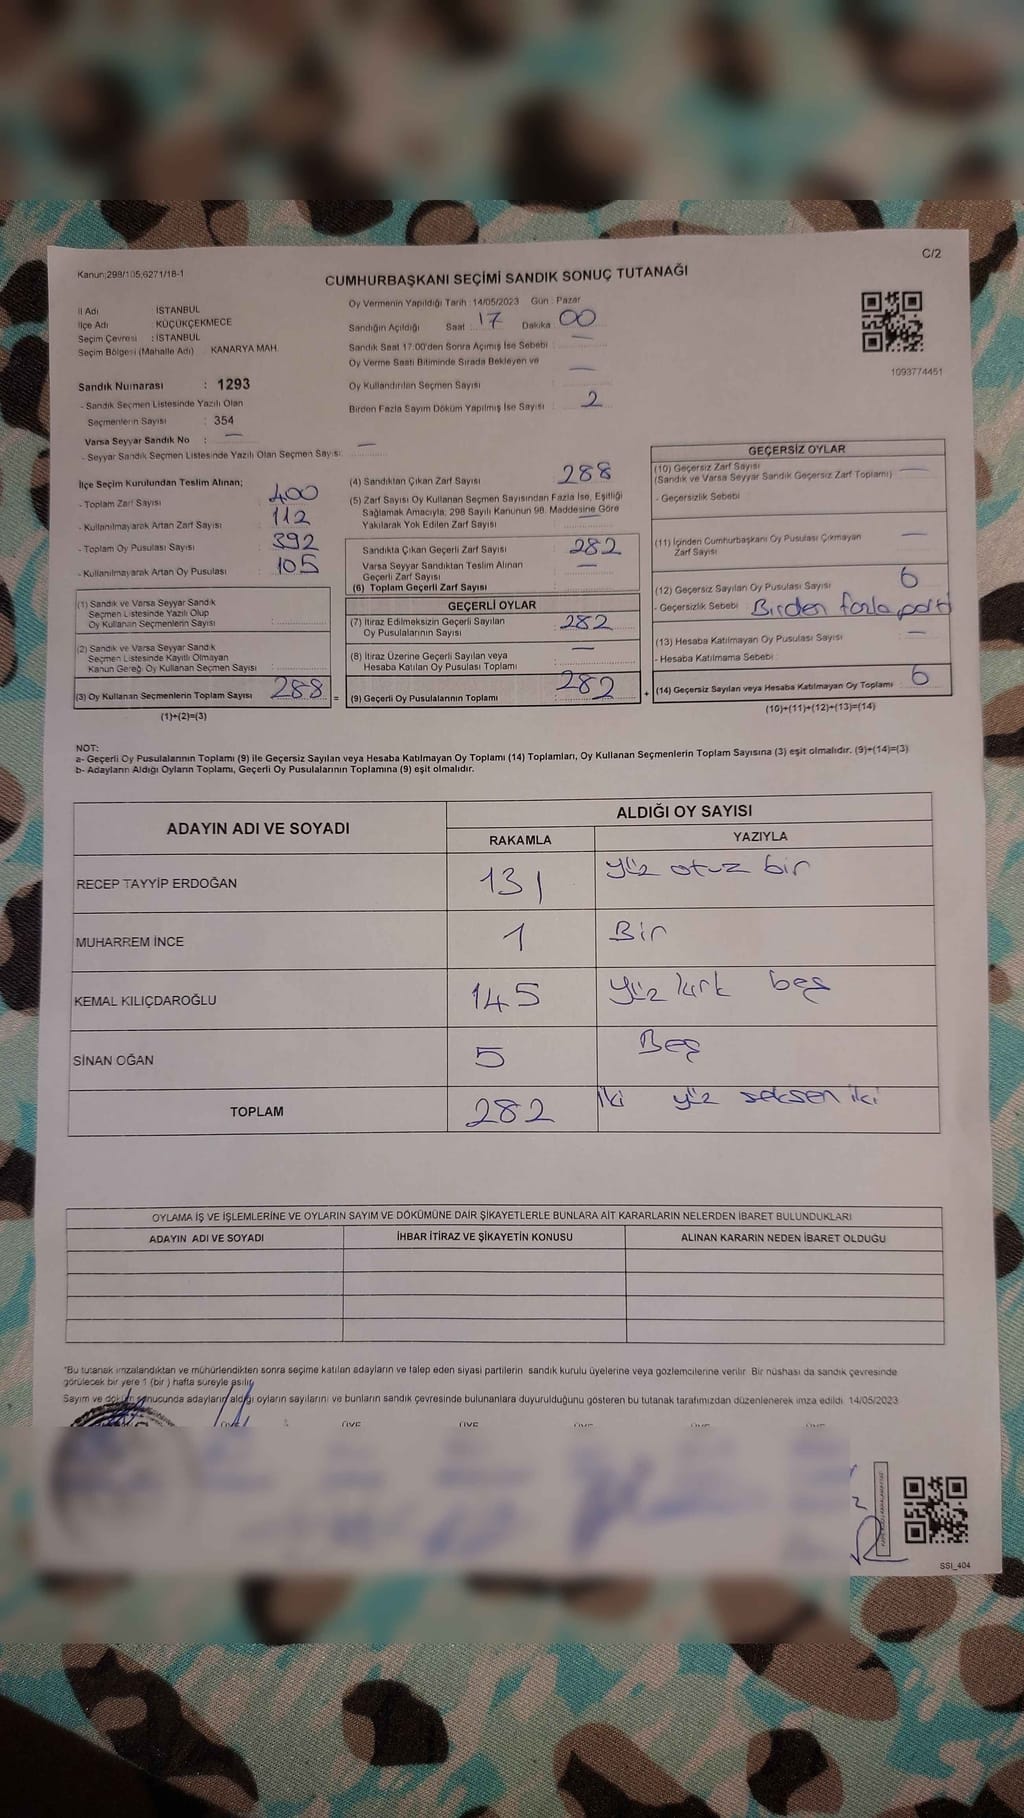 C/2
Kanun:298/105,6271/18-1
CUMHURBAŞKANI SEÇİMİ SANDIK SONUÇ TUTANAĞI
İl Adı İSTANBUL
İlçe Adı KÜÇÜKÇEKMECE
Seçim Çevresi : İSTANBUL
Seçim Bölgesi (Mahalle Adı) KANARYA MAH.
Sandık Numarası : 1293
- Sandık Seçmen Listesinde Yazılı Olan
Seçmenlerin Sayısı : 354
Varsa Seyyar Sandık No : —
- Seyyar Sandık Seçmen Listesinde Yazılı Olan Seçmen Sayısı: —
Oy Vermenin Yapıldığı Tarih : 14/05/2023 Gün : Pazar
Sandığın Açıldığı Saat 17 Dakika 00
Sandık Saat 17:00'den Sonra Açımış İse Sebebi : —
Oy Verme Saati Bitiminde Sırada Bekleyen ve
Oy Kullandırılan Seçmen Sayısı : —
Birden Fazla Sayım Döküm Yapılmış İse Sayısı : 2
1093774451
İlçe Seçim Kurulundan Teslim Alınan;
- Toplam Zarf Sayısı : 400
- Kullanılmayarak Artan Zarf Sayısı : 112
- Toplam Oy Pusulası Sayısı : 392
- Kullanılmayarak Artan Oy Pusulası : 105
(1) Sandık ve Varsa Seyyar Sandık
Seçmen Listesinde Yazılı Olup
Oy Kullanan Seçmenlerin Sayısı :
(2) Sandık ve Varsa Seyyar Sandık
Seçmen Listesinde Kayıtlı Olmayan
Kanun Gereği Oy Kullanan Seçmen Sayısı :
(3) Oy Kullanan Seçmenlerin Toplam Sayısı : 288 =
(1)+(2)=(3)
(4) Sandıktan Çıkan Zarf Sayısı : 288
(5) Zarf Sayısı Oy Kullanan Seçmen Sayısından Fazla İse, Eşitliği
Sağlamak Amacıyla; 298 Sayılı Kanunun 98. Maddesine Göre
Yakılarak Yok Edilen Zarf Sayısı : —
Sandıkta Çıkan Geçerli Zarf Sayısı : 282
Varsa Seyyar Sandıktan Teslim Alınan
Geçerli Zarf Sayısı : —
(6) Toplam Geçerli Zarf Sayısı :
GEÇERLİ OYLAR
(7) İtiraz Edilmeksizin Geçerli Sayılan
Oy Pusulalarının Sayısı : 282
(8) İtiraz Üzerine Geçerli Sayılan veya
Hesaba Katılan Oy Pusulası Toplamı : —
(9) Geçerli Oy Pusulalarının Toplamı : 282 +
GEÇERSİZ OYLAR
(10) Geçersiz Zarf Sayısı —
(Sandık ve Varsa Seyyar Sandık Geçersiz Zarf Toplamı)
- Geçersizlik Sebebi
(11) İçinden Cumhurbaşkanı Oy Pusulası Çıkmayan —
Zarf Sayısı
(12) Geçersiz Sayılan Oy Pusulası Sayısı 6
- Geçersizlik Sebebi Birden fazla parti
(13) Hesaba Katılmayan Oy Pusulası Sayısı —
- Hesaba Katılmama Sebebi :
(14) Geçersiz Sayılan veya Hesaba Katılmayan Oy Toplamı : 6
(10)+(11)+(12)+(13)=(14)
NOT:
a- Geçerli Oy Pusulalarının Toplamı (9) ile Geçersiz Sayılan veya Hesaba Katılmayan Oy Toplamı (14) Toplamları, Oy Kullanan Seçmenlerin Toplam Sayısına (3) eşit olmalıdır. (9)+(14)=(3)
b- Adayların Aldığı Oyların Toplamı, Geçerli Oy Pusulalarının Toplamına (9) eşit olmalıdır.
ADAYIN ADI VE SOYADI ALDIĞI OY SAYISI
RAKAMLA YAZIYLA
RECEP TAYYİP ERDOĞAN 131 yüz otuz bir
MUHARREM İNCE 1 Bir
KEMAL KILIÇDAROĞLU 145 yüz kırk beş
SİNAN OĞAN 5 Beş
TOPLAM 282 iki yüz seksen iki
OYLAMA İŞ VE İŞLEMLERİNE VE OYLARIN SAYIM VE DÖKÜMÜNE DAİR ŞİKAYETLERLE BUNLARA AİT KARARLARIN NELERDEN İBARET BULUNDUKLARI
ADAYIN ADI VE SOYADI İHBAR İTİRAZ VE ŞİKAYETİN KONUSU ALINAN KARARIN NEDEN İBARET OLDUĞU
*Bu tutanak imzalandıktan ve mühürlendikten sonra seçime katılan adayların ve talep eden siyasi partilerin sandık kurulu üyelerine veya gözlemcilerine verilir. Bir nüshası da sandık çevresinde
görülecek bir yere 1 (bir ) hafta süreyle asılır.
Sayım ve döküm sonucunda adayların aldığı oyların sayılarını ve bunların sandık çevresinde bulunanlara duyurulduğunu gösteren bu tutanak tarafımızdan düzenlenerek imza edildi. 14/05/2023
ÜYE ÜYE ÜYE ÜYE ÜYE ÜYE
SSI_404